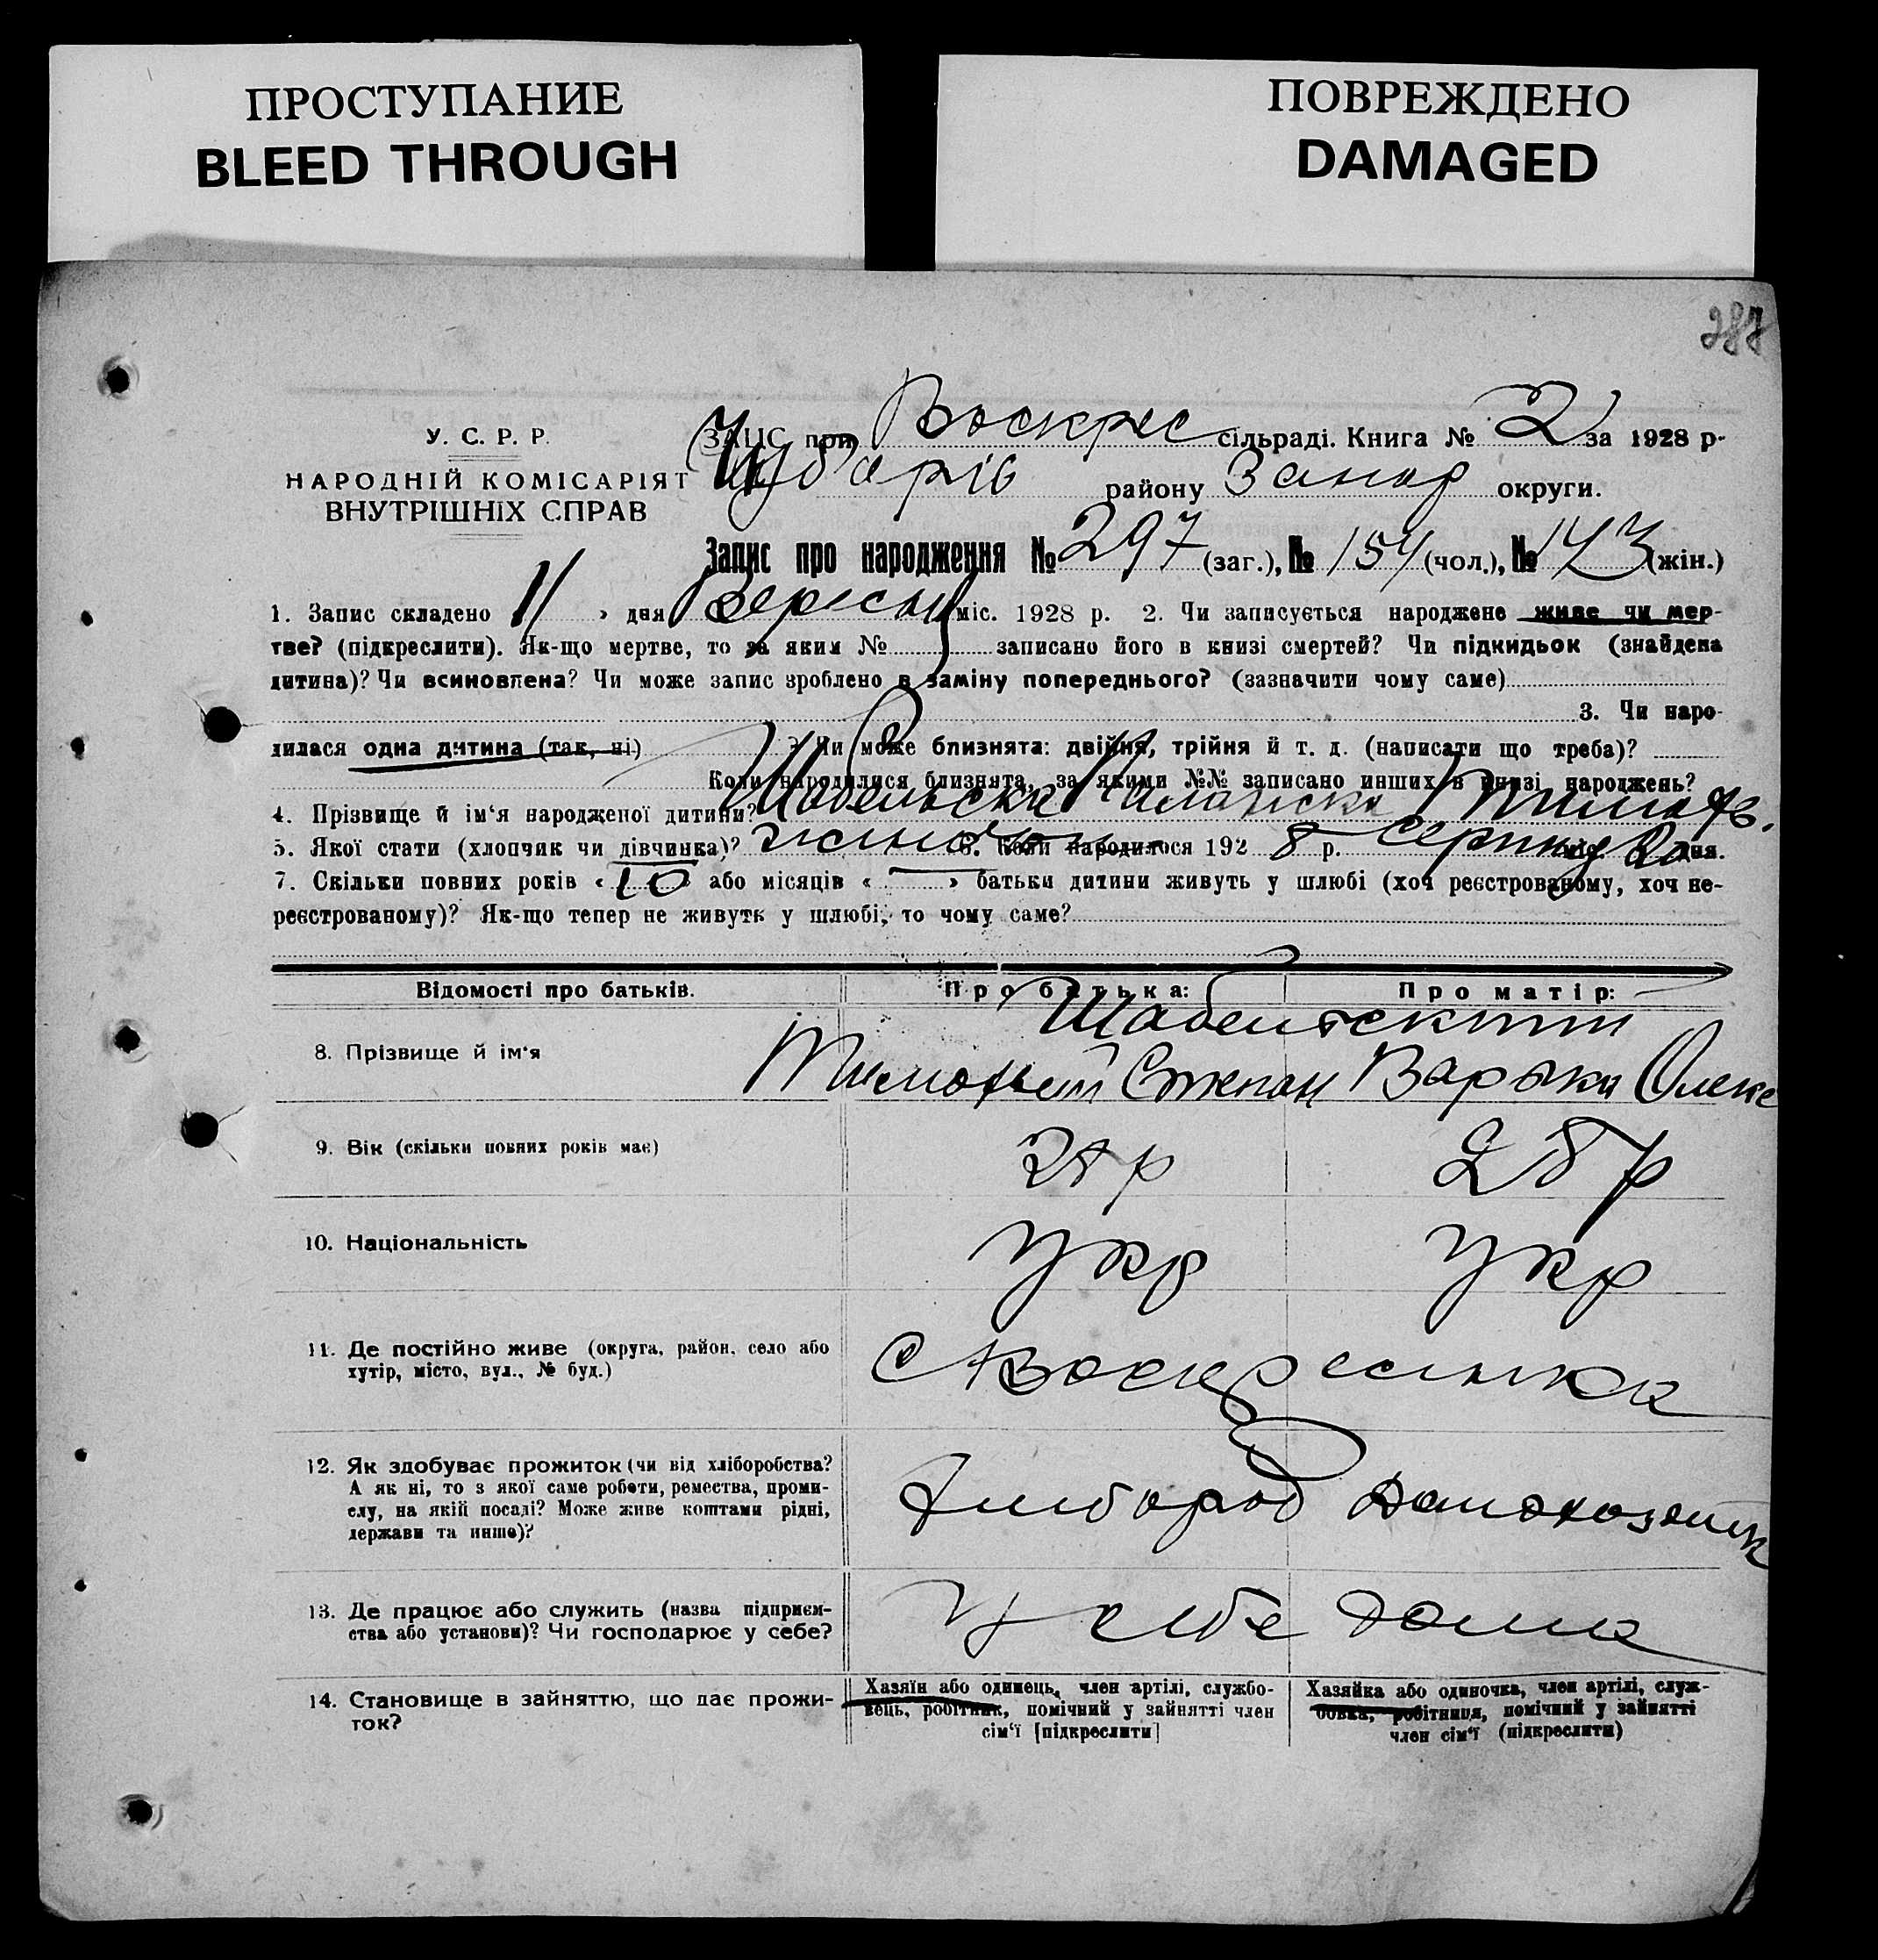 ПРОСТУПАНИЕ
BLEED THROUGH
ПОВРЕЖДЕНО
DAMAGED
287
У. С. Р. Р.
НАРОДНІЙ КОМІСАРІЯТ
ВНУТРІШНІХ СПРАВ
ЗАЦС при Воскрес сільраді. Книга № 2 за 1928 р.
Чубарів району Запор округи.
Запис про народження № 297 (заг.), № 154 (чол.), № 143 (жін.)
1. Запис складено 11 » дня Вересня міс. 1928 р. 2. Чи записується народжене живе чи мер-
тве? (підкреслити). Як-що мертве, то за яким № записано його в книзі смертей? Чи підкидьок (знайдена
дитина)? Чи всиновлена? Чи може запис зроблено в заміну попереднього? (зазначити чому саме)
3. Чи наро-
дилася одна дитина (так, ні) ? Чи може близнята: двійня, трійня й т. д. (написати що треба)?
Коли народилися близнята, за якими №№ записано инших в книзі народжень?
4. Прізвище й ім‘я народженої дитини? Шабельська Тимоф.
5. Якої стати (хлопчик чи дівчинка)? жиноча 6. Коли народилося 1928 р. серпня міс. 20 дня.
7. Скільки повних років « 10 » або місяців « — » батьки дитини живуть у шлюбі (хоч реєстрованому, хоч не-
реєстрованому)? Як-що тепер не живуть у шлюбі, то чому саме?
Відомості про батьків. Про батька: Про матір:
Шабельскти
8. Прізвище й ім‘я Тимофьей Степан Варька Олекс
9. Вік (скільки повних років має) 28 р 28 р
10. Національність Укр Укр
11. Де постійно живе (округа, район, село або
хутір, місто, вул., № буд.)
с Воскресинка
12. Як здобуває прожиток (чи від хліборобства?
А як ні, то з якої саме роботи, ремества, проми-
слу, на якій посаді? Може живе коштами рідні,
держави та инше)?
Хлибороб Домохозяйк
13. Де працює або служить (назва підприєм-
ства або установи)? Чи господарює у себе?
У себе дома
14. Становище в зайняттю, що дає прожи-
ток?
Хазяїн або одинець, член артілі, службо-
вець, робітник, помічний у зайнятті член
сім‘ї [підкреслити]
Хазяйка або одиночка, член артілі, служ-
бовка, робітниця, помічний у зайнятті
член сім‘ї (підкреслити)